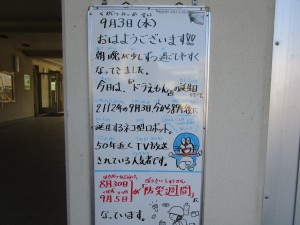 9月3日(木)
おはようございます!!
朝晩が少しずつ過ごしやすく
なってきました。
今日は、"ドラえもん"の誕生日
2112年の9月3日
誕生するネコ型ロボット。
50年近くTV放送
されている人気者です。
8月30日
9月5日
が"防災週間"に
なっています。